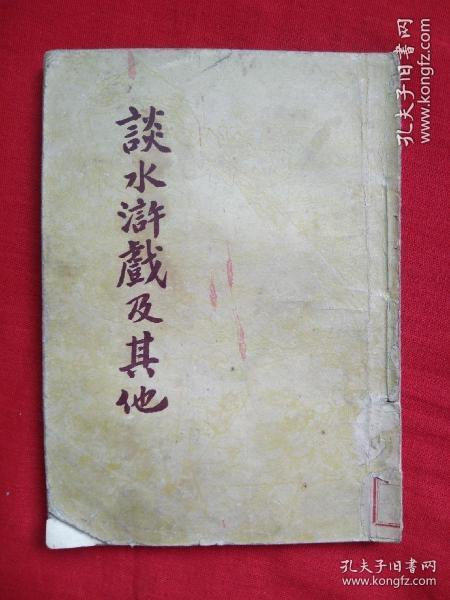 談水滸戲及其他
孔夫子旧书网
www.kongfz.com
孔夫子旧书网
www.kongfz.com